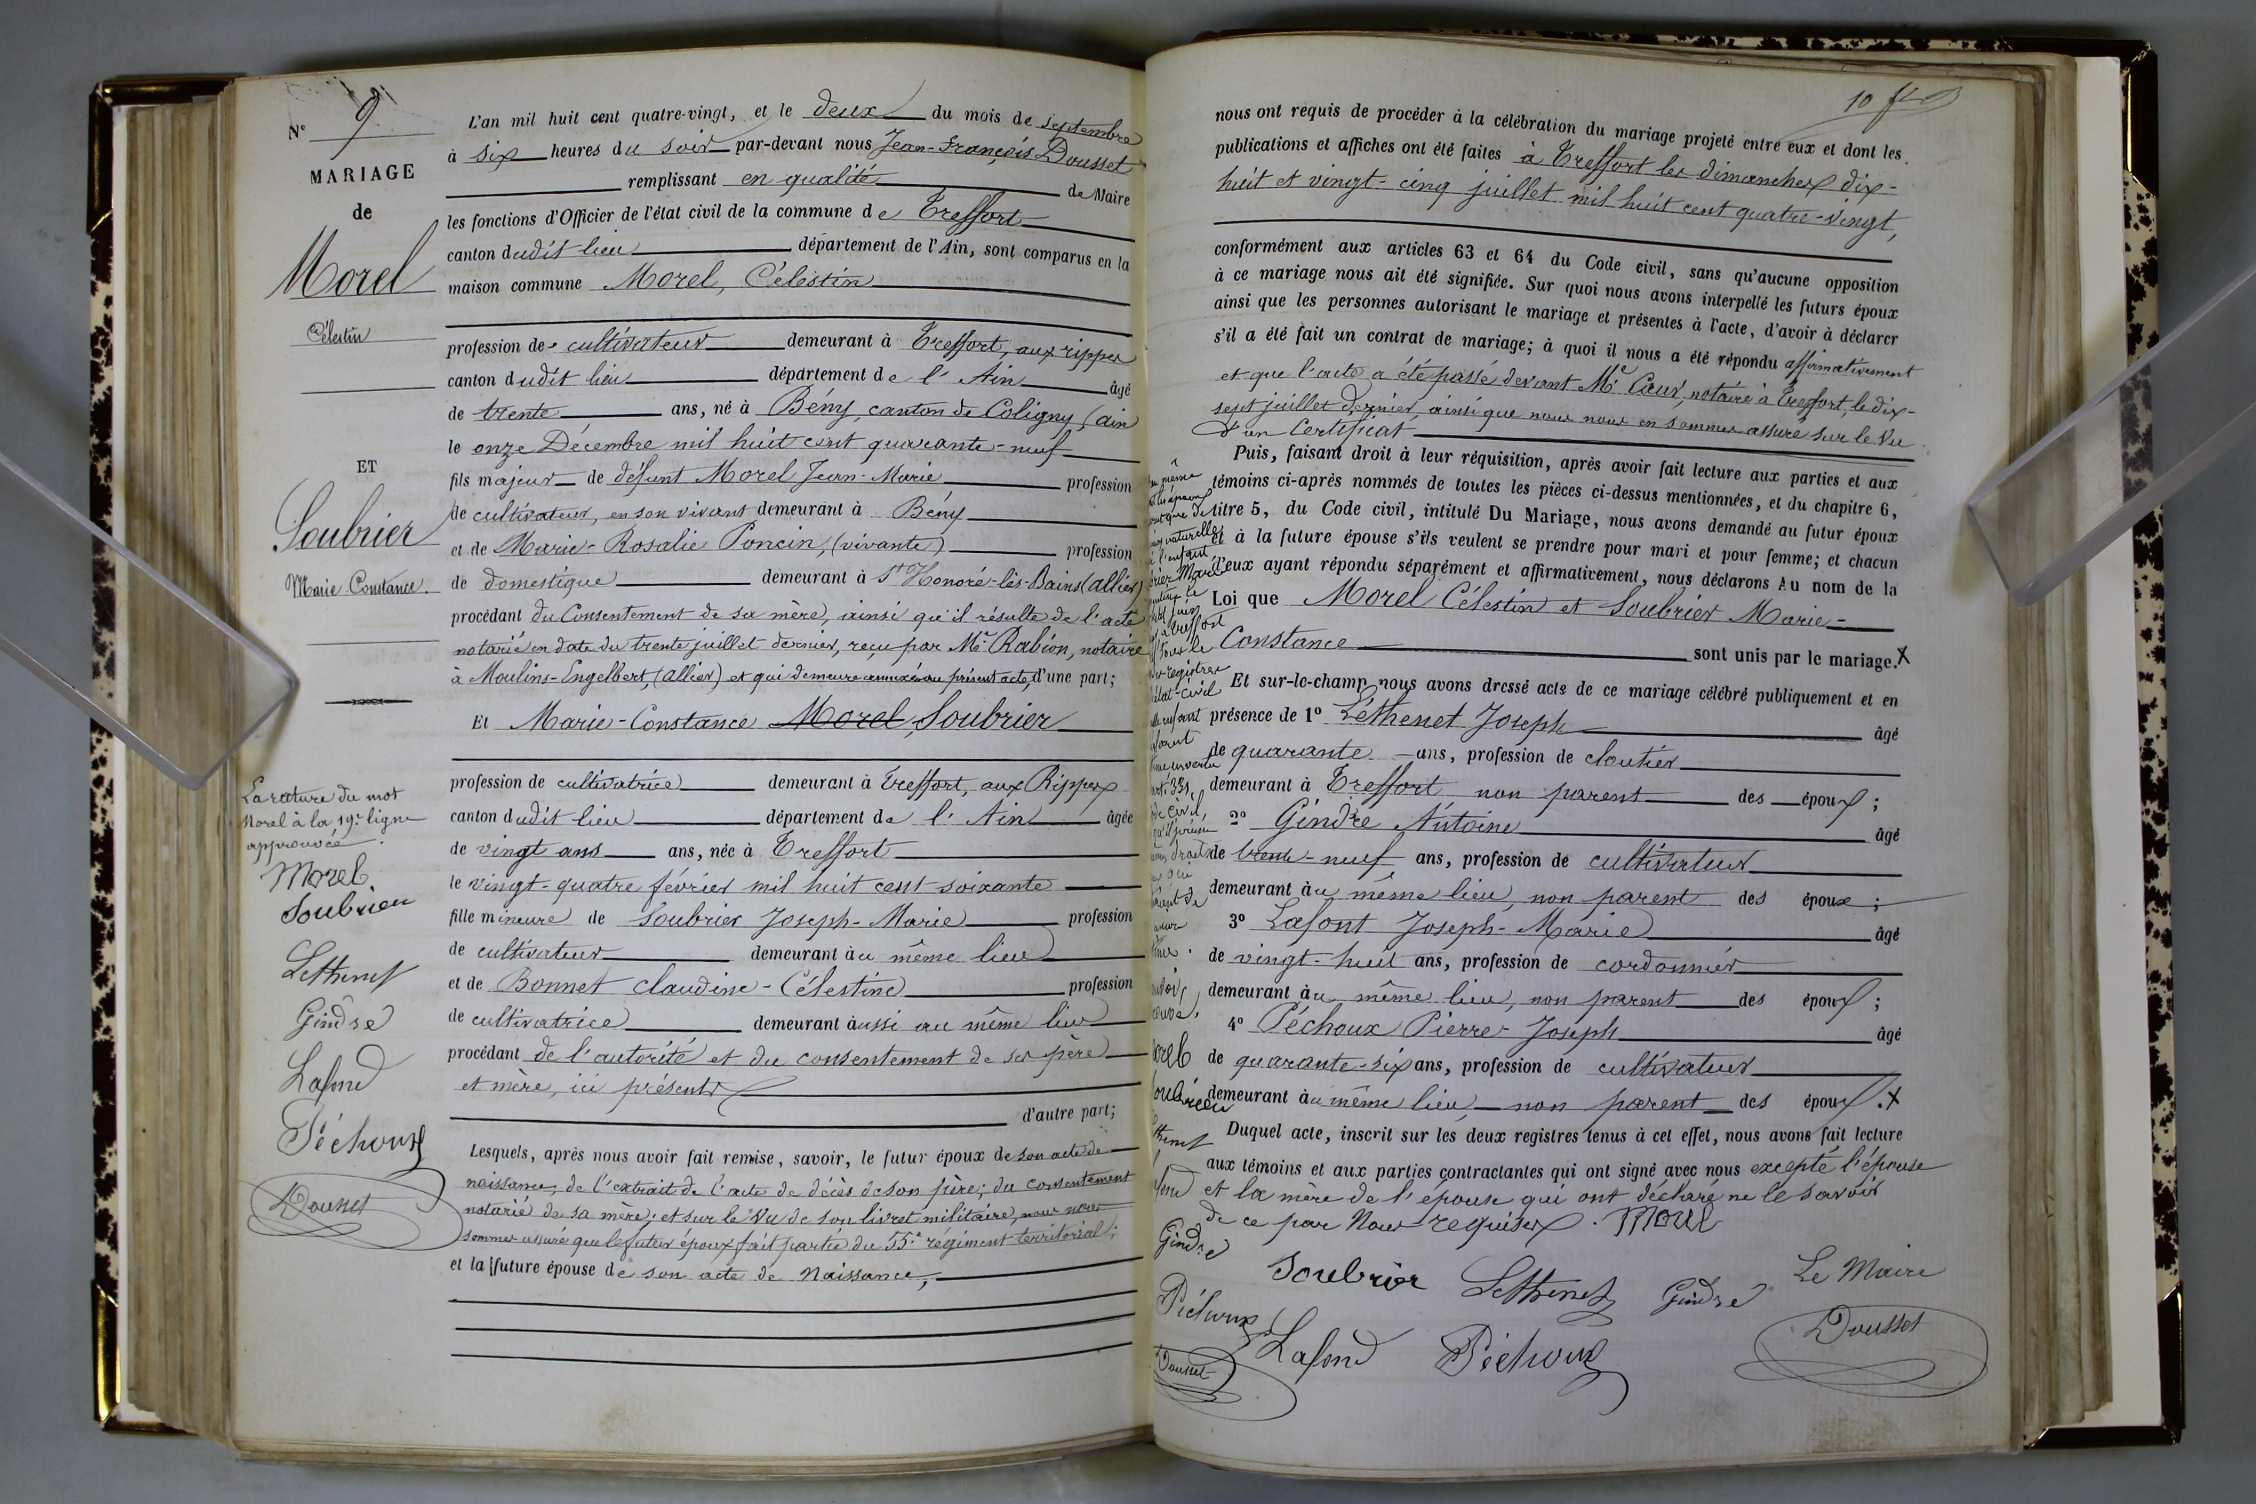 N° 9
MARIAGE
de
Morel
Célestin
ET
Soubrier
Marie-Constance.
La rature du mot
Morel à la 19e ligne
approuvée.
Morel
Soubrier
Lethenet
Gindre
Lafond
Péchoux
Dousset
L'an mil huit cent quatre-vingt, et le deux du mois de septembre
à six heures du soir par-devant nous Jean-François Dousset
remplissant en qualité de Maire
les fonctions d'Officier de l'état civil de la commune de Treffort
canton dudit lieu département de l'Ain, sont comparus en la
maison commune Morel, Célestin
profession de cultivateur demeurant à Treffort, aux rippes
canton dudit lieu département de l'Ain âgé
de trente ans, né à Bény, canton de Coligny (ain
le onze Décembre mil huit cent quarante-neuf
fils majeur de défunt Morel Jean-Marie profession
de cultivateur, en son vivant demeurant à Bény
et de Marie-Rosalie Poncin, (vivante) profession
de domestique demeurant à St Honoré-lès-Bains (allier)
procédant du Consentement de sa mère, ainsi qu'il résulte de l'acte
notarié en date du trente juillet dernier, reçu par Me Rabion, notaire
à Moulins-Engelbert, (allier) et qui demeure annexé au présent acte, d'une part;
Et Marie-Constance Morel Soubrier
profession de cultivatrice demeurant à Treffort, aux Rippes
canton dudit lieu département de l'Ain âgée
de vingt ans ans, née à Treffort
le vingt-quatre février mil huit cent soixante
fille mineure de Soubrier Joseph-Marie profession
de cultivateur demeurant au même lieu
et de Bonnet Claudine-Célestine profession
de cultivatrice demeurant aussi au même lieu
procédant de l'autorité et du consentement de ses père
et mère, ici présents
d'autre part;
Lesquels, après nous avoir fait remise, savoir, le futur époux de son acte de
naissance, de l'extrait de l'acte de décès de son père; du consentement
notarié de sa mère; et sur le Vu de son livret militaire, nous nous
sommes assurés que le futur époux fait partie du 55e régiment territorial;
et la future épouse de son acte de Naissance;
nous ont requis de procéder à la célébration du mariage projeté entre eux et dont les
publications et affiches ont été faites à Treffort les dimanches dix-
huit et vingt-cinq juillet mil huit cent quatre-vingt,
conformément aux articles 63 et 64 du Code civil, sans qu'aucune opposition
à ce mariage nous ait été signifiée. Sur quoi nous avons interpellé les futurs époux
ainsi que les personnes autorisant le mariage et présentes à l'acte, d'avoir à déclarer
s'il a été fait un contrat de mariage; à quoi il nous a été répondu affirmativement
et que l'acte a été passé devant Me Cœur, notaire à Treffort, le dix-
sept juillet dernier, ainsi que nous nous en sommes assuré sur le Vu
d'un Certificat
Puis, faisant droit à leur réquisition, après avoir fait lecture aux parties et aux
témoins ci-après nommés de toutes les pièces ci-dessus mentionnées, et du chapitre 6,
titre 5, du Code civil, intitulé Du Mariage, nous avons demandé au futur époux
et à la future épouse s'ils veulent se prendre pour mari et pour femme; et chacun
d'eux ayant répondu séparément et affirmativement, nous déclarons Au nom de la
Loi que Morel Célestin et Soubrier Marie-
Constance sont unis par le mariage. X
Et sur-le-champ nous avons dressé acte de ce mariage célébré publiquement et en
présence de 1° Léthenet Joseph âgé
de quarante ans, profession de cloutier
demeurant à Treffort non parent des époux;
2° Gindre Antoine âgé
de trente-neuf ans, profession de cultivateur
demeurant au même lieu, non parent des époux;
3° Lafont Joseph-Marie âgé
de vingt-huit ans, profession de cordonnier
demeurant au même lieu, non parent des époux;
4° Péchoux Pierre-Joseph âgé
de quarante-six ans, profession de cultivateur
demeurant au même lieu, non parent des époux. X
Duquel acte, inscrit sur les deux registres tenus à cet effet, nous avons fait lecture
aux témoins et aux parties contractantes qui ont signé avec nous excepté l'épouse
et la mère de l'épouse qui ont déclaré ne le savoir
de ce par Nous requises. Morel
Soubrier Lethenet Gindre Le Maire
Lafond Péchoux Dousset
même
naturelle
l'enfant
Treffort
registres
état-civil
enfant
art. 331,
civil,
droits
Gindre
Péchoux
Dousset